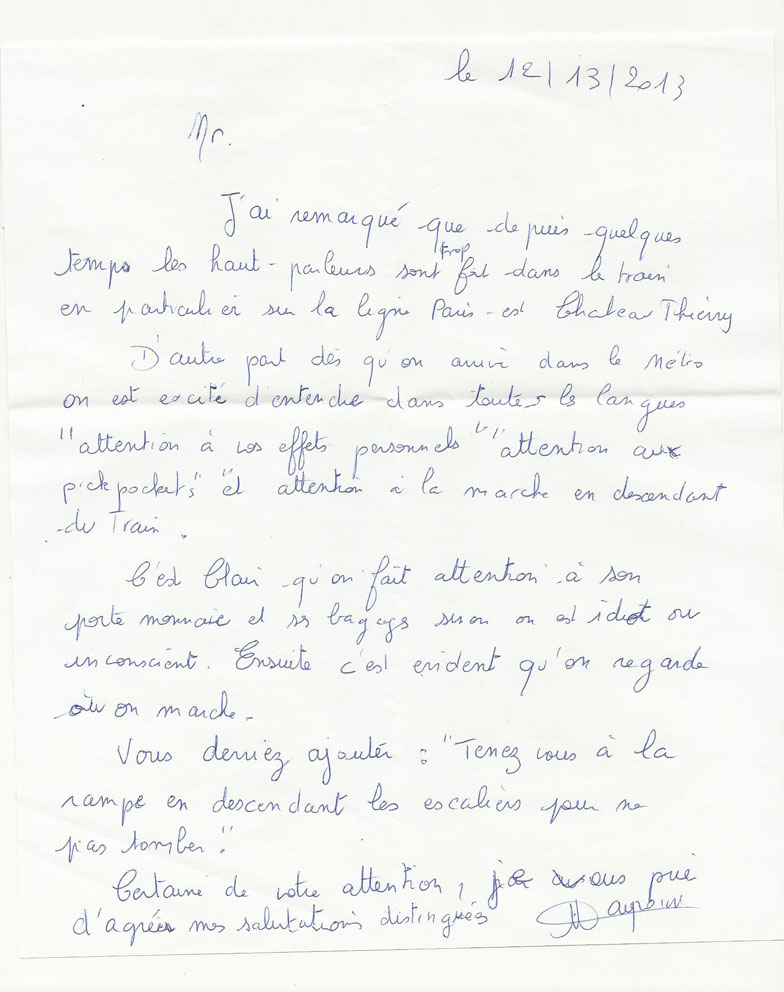 le 12/13/2013
Mr.
J'ai remarqué que depuis quelques
temps les haut-parleurs sont trop fort dans le train
en particulier sur la ligne Paris-est Chateau Thierry
D'autre part dès qu'on arrive dans le Métro
on est excité d'entendre dans toutes les langues
"attention à vos effets personnels" "attention aux
pickpockets" "et attention à la marche en descendant
du Train.
C'est Clair qu'on fait attention à son
porte monnaie et ses bagages sinon on est idiot ou
inconscient. Ensuite c'est evident qu'on regarde
où on marche.
Vous devriez ajouter : "Tenez vous à la
rampe en descendant les escaliers pour ne
pas tomber".
Certaine de votre attention, je vous prie
d'agréer mes salutations distinguées